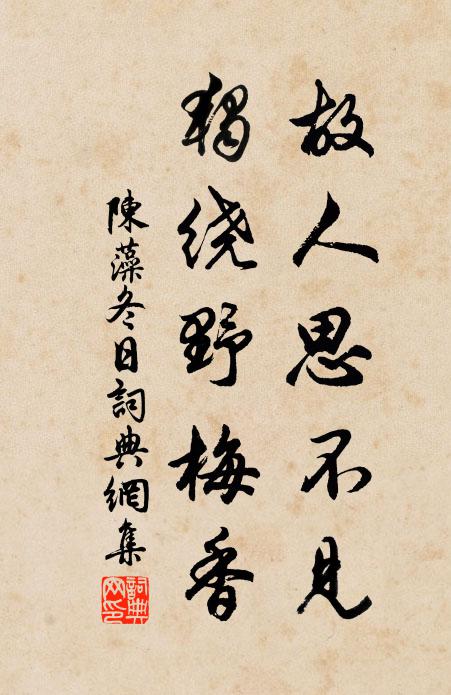 故人思不见
獨绕野梅香
陳藻冬日詞典網集
詞典网印